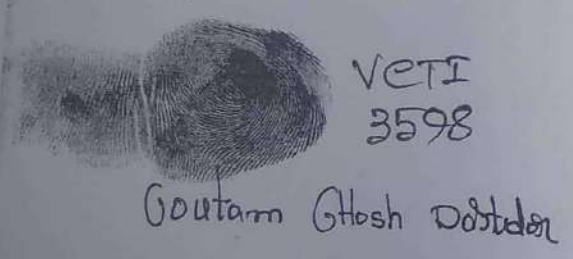 VCTI
3598
Goutam GHosh Dostder